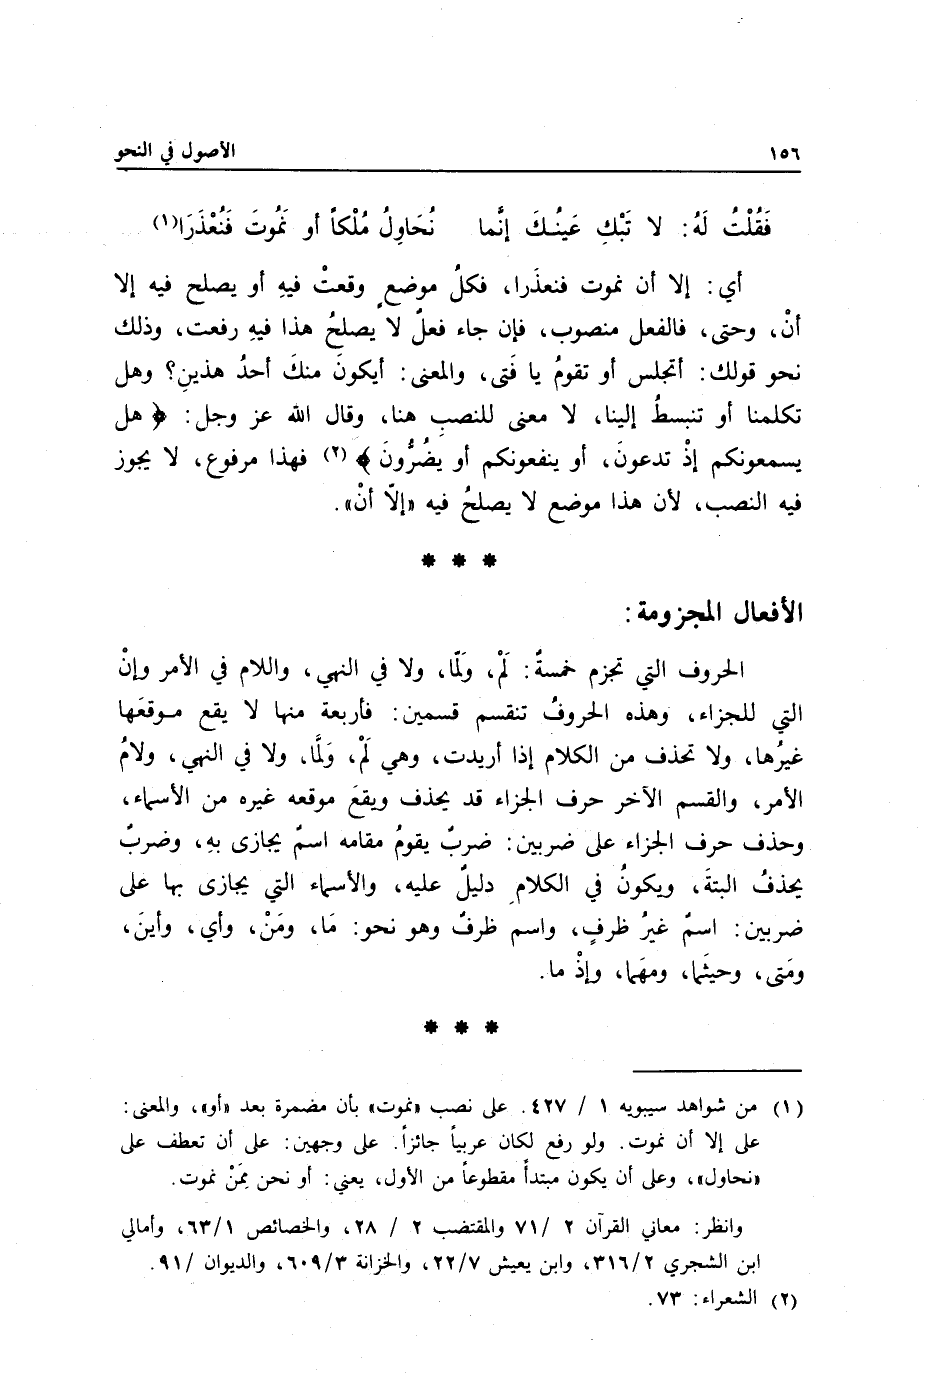 ١٥٦ الأصول في النحو
فَقُلْتُ لَهُ: لا تَبْكِ عَينُكَ إنَّما نُحَاوِلُ مُلْكاً أو نَمُوتَ فَنُعْذَرَا(١)
أي: إلا أن نموت فنعذَرا، فكلُ موضعٍ وقعتْ فيهِ أو يصلح فيه إلا
أنْ، وحتى، فالفعل منصوب، فإن جاء فعلٌ لا يصلحُ هذا فيهِ رفعت، وذلك
نحو قولك: أتجلس أو تقومُ يا فَتى، والمعنى: أيكونَ منكَ أحدُ هذينِ؟ وهل
تكلمنا أو تنبسطُ إلينا، لا معنى للنصبِ هنا، وقال الله عز وجل: ﴿ هل
يسمعونكم إذْ تدعونَ، أو ينفعونكم أو يضُرُّونَ ﴾ (٢) فهذا مرفوع، لا يجوز
فيه النصب، لأن هذا موضع لا يصلحُ فيه «إلّا أنْ».
* * *
الأفعال المجزومة:
الحروف التي تجزم خمسةٌ: لَمْ، وَلَمّا، ولا في النهي، واللام في الأمر وإنْ
التي للجزاء، وهذه الحروفُ تنقسم قسمين: فأربعة منها لا يقع موقعَها
غيرُها، ولا تحذف من الكلام إذا أريدت، وهي لَمْ، وَلَمَّا، ولا في النهي، ولامُ
الأمر، والقسم الآخر حرف الجزاء قد يحذف ويقعَ موقعه غيره من الأسماء،
وحذف حرف الجزاء على ضربين: ضربٌ يقومُ مقامه اسمٌ يجازى بهِ، وضربٌ
يحذفُ البتةَ، ويكونُ في الكلامِ دليلٌ عليه، والأسماء التي يجازى بها على
ضربين: اسمٌ غيرُ ظرفٍ، واسم ظرفٌ وهو نحو: مَا، ومَنْ، وأي، وأينَ،
ومَتى، وحيثَما، ومهَما، وإذْ ما.
* * *
(١) من شواهد سيبويه ١ / ٤٢٧. على نصب «نموت» بأن مضمرة بعد «أو»، والمعنى:
على إلا أن نموت. ولو رفع لكان عربياً جائزاً. على وجهين: على أن تعطف على
«نحاول»، وعلى أن يكون مبتدأ مقطوعاً من الأول، يعني: أو نحن مِمَنْ نموت.
وانظر: معاني القرآن ٢ /٧١ والمقتضب ٢ / ٢٨، والخصائص ٦٣/١، وأمالي
ابن الشجري ٣١٦/٢، وابن يعيش ٢٢/٧، والخزانة ٦٠٩/٣، والديوان /٩١.
(٢) الشعراء: ٧٣.